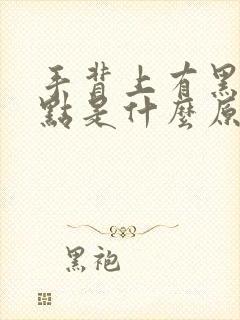 手背上有黑
點是什麼原
黑袍